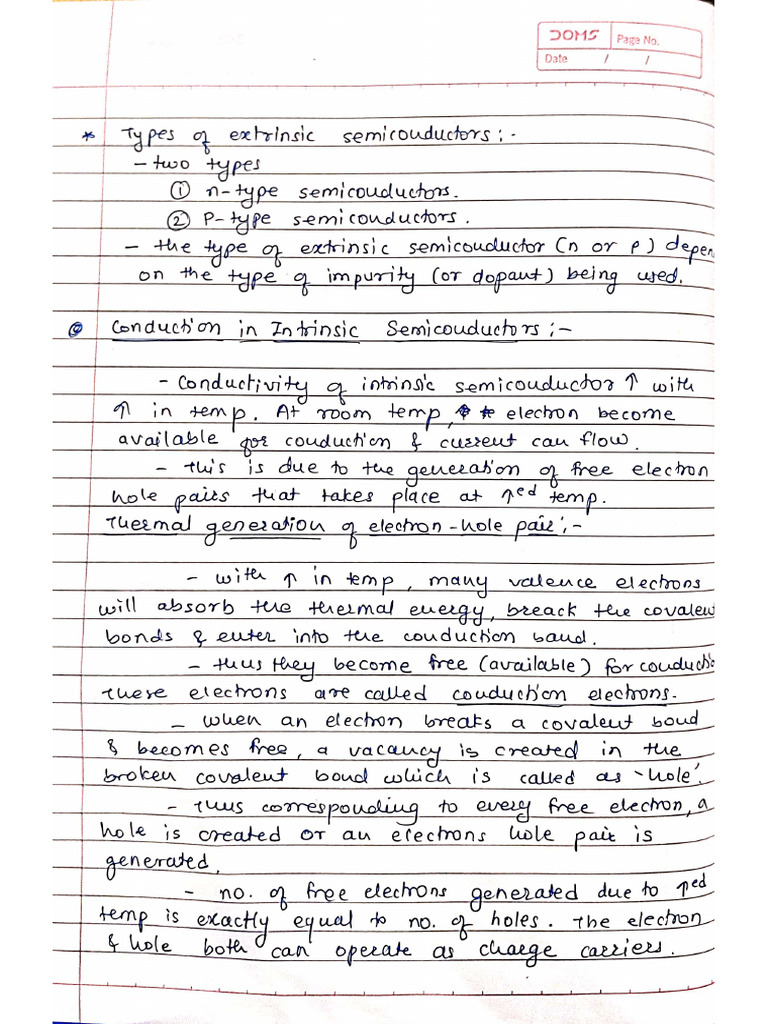 DOMS Page No.
Date / /
* Types of extrinsic semiconductors:-
- two types
① n-type semiconductors.
② P-type semiconductors.
- the type of extrinsic semiconductor (n or p) depen
on the type of impurity (or dopant) being used.
Conduction in Intrinsic Semiconductors:-
- Conductivity of intrinsic semiconductor ↑ with
↑ in temp. At room temp, electron become
available for conduction & current can flow.
- this is due to the generation of free electron
hole pairs that takes place at ↑ed temp.
Thermal generation of electron-hole pair:-
- with ↑ in temp, many valence electrons
will absorb the thermal energy, breack the covalen
bonds & enter into the conduction band.
- thus they become free (available) for conducti
these electrons are called conduction electrons.
- when an electron breaks a covalent bond
& becomes free, a vacancy is created in the
broken covalent bond which is called as 'hole'.
- thus corresponding to every free electron, a
hole is created or an electrons hole pair is
generated.
- no. of free electrons generated due to ↑ed
temp is exactly equal to no. of holes. The electron
& hole both can operate as charge carriers.